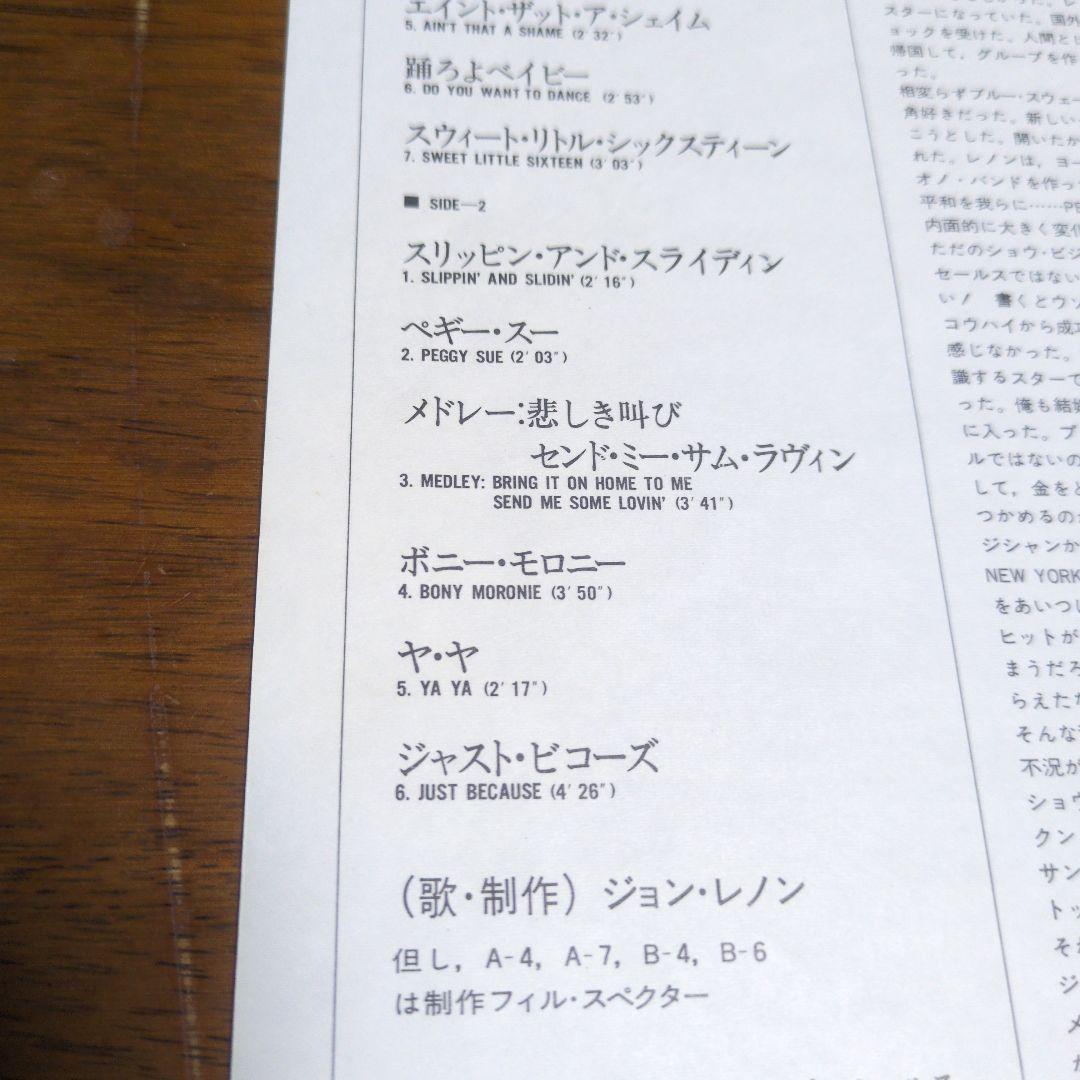 エイント・ザット・ア・シェイム
5. AIN'T THAT A SHAME (2′32″)
踊ろよベイビー
6. DO YOU WANT TO DANCE (2′53″)
スウィート・リトル・シックスティーン
7. SWEET LITTLE SIXTEEN (3′03″)
■ SIDE—2
スリッピン・アンド・スライディン
1. SLIPPIN' AND SLIDIN' (2′16″)
ペギー・スー
2. PEGGY SUE (2′03″)
メドレー:悲しき叫び
センド・ミー・サム・ラヴィン
3. MEDLEY: BRING IT ON HOME TO ME
SEND ME SOME LOVIN' (3′41″)
ボニー・モロニー
4. BONY MORONIE (3′50″)
ヤ・ヤ
5. YA YA (2′17″)
ジャスト・ビコーズ
6. JUST BECAUSE (4′26″)
(歌・制作) ジョン・レノン
但し, A-4, A-7, B-4, B-6
は制作フィル・スペクター
スターになっていた。国外
ョックを受けた。人間と
帰国して,グループを作
った。
相変らずブルー・スウェー
角好きだった。新しい
こうとした。開いたか
れた。レノンは,ヨー
オノ・バンドを作っ
平和を我らに……PE
内面的に大きく変化
ただのショウ・ビジ
セールスではない
い! 書くとウソ
コウハイから成功
感じなかった。
識するスターで
った。俺も結婚
に入った。プ
ルではないの
して,金をど
つかめるのか
ジシャンか
NEW YORK
をあいつし
ヒットが
まうだろ
らえただ
そんな
不況が
ショウ
クン
サン
トッ
それ
ジ